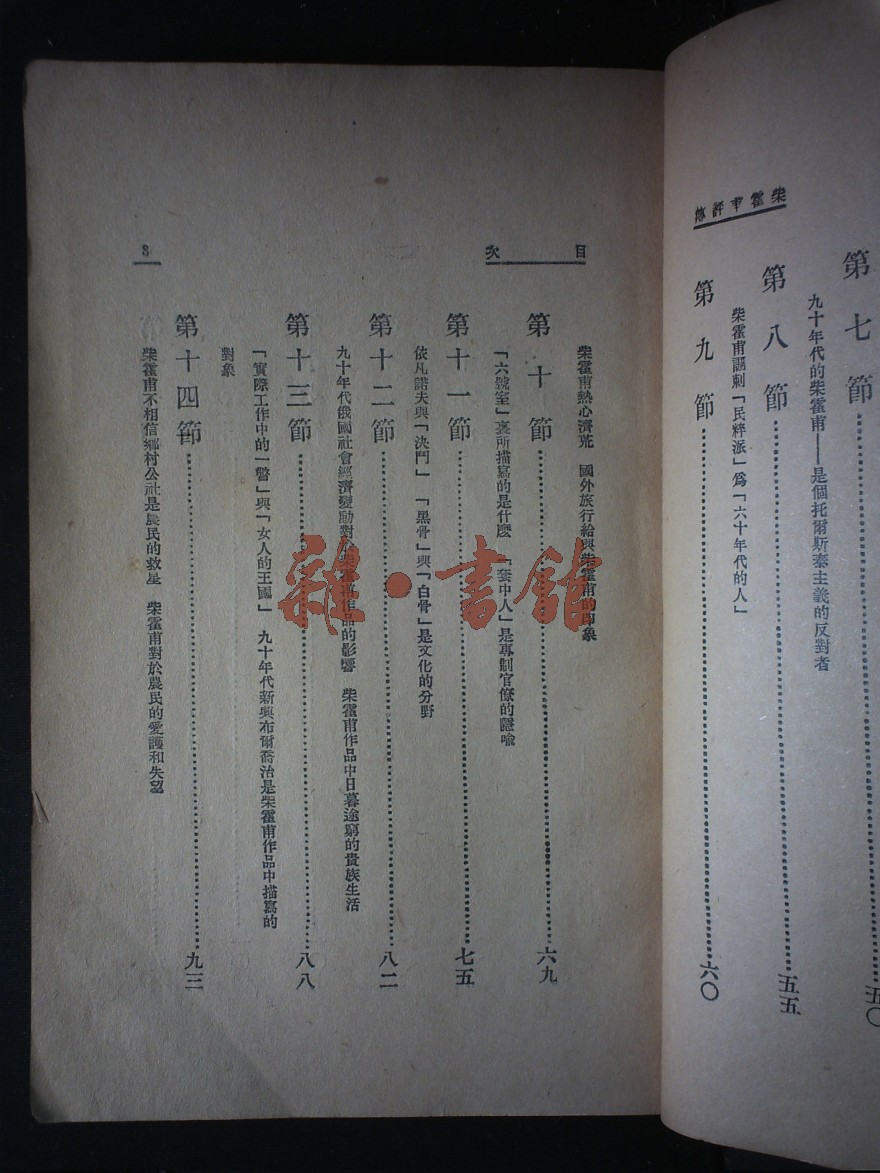 柴霍甫評傳
第七節……五〇
九十年代的柴霍甫——是個托爾斯泰主義的反對者
第八節……五五
柴霍甫諷刺「民粹派」爲「六十年代的人」
第九節……六〇
目次
柴霍甫熱心濟荒　國外旅行給與柴霍甫的印象
第十節……六九
「六號室」裏所描寫的是什麼　「套中人」是專制官僚的隱喩
第十一節……七五
依凡諾夫與「決鬥」　「黑骨」與「白骨」是文化的分野
第十二節……八二
九十年代俄國社會經濟變動對於柴霍甫作品的影響　柴霍甫作品中日暮途窮的貴族生活
第十三節……八八
「實際工作中的一瞥」與「女人的王國」　九十年代新興布爾喬治是柴霍甫作品中描寫的
對象
第十四節……九三
柴霍甫不相信鄉村公社是農民的救星　柴霍甫對於農民的愛護和失望
3
雜·書館